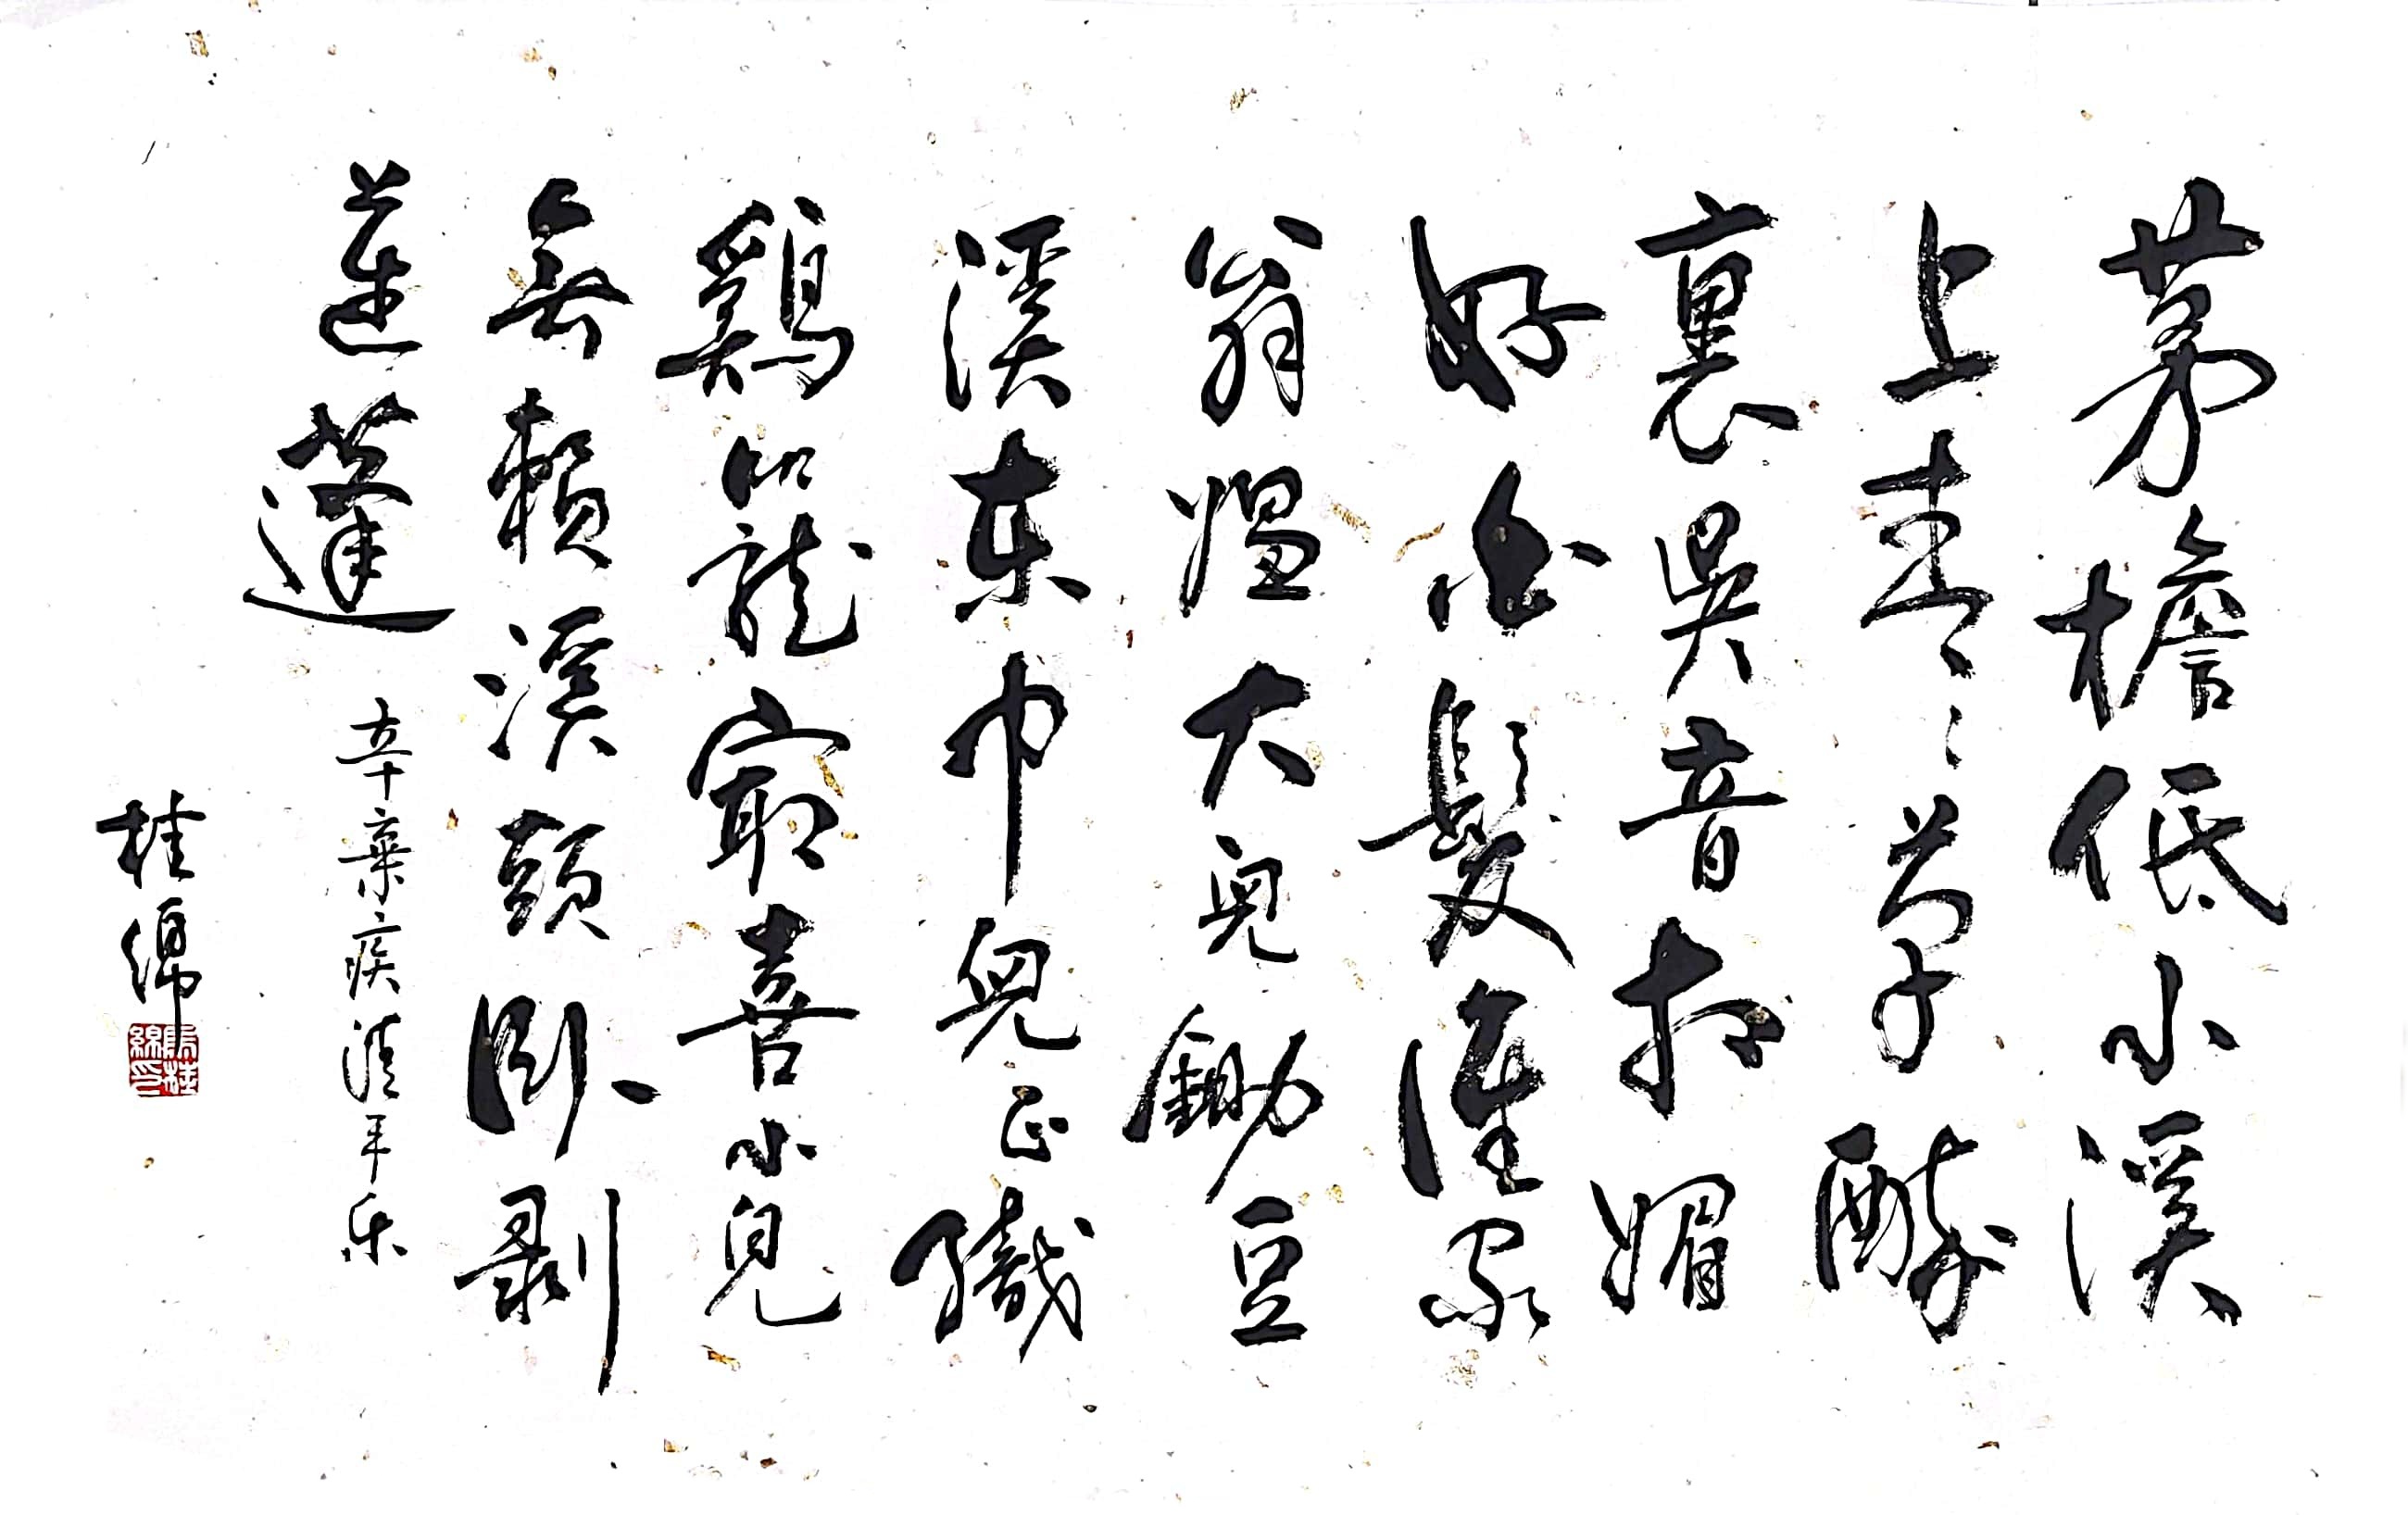 茅檐低小溪
上青々草醉
裏吳音相媚
好白髮誰家
翁媼大兒鋤豆
溪東中兒正織
鷄籠最喜小兒
無賴溪頭卧剥
蓮蓬
辛棄疾清平乐
桂綿
桂綿印